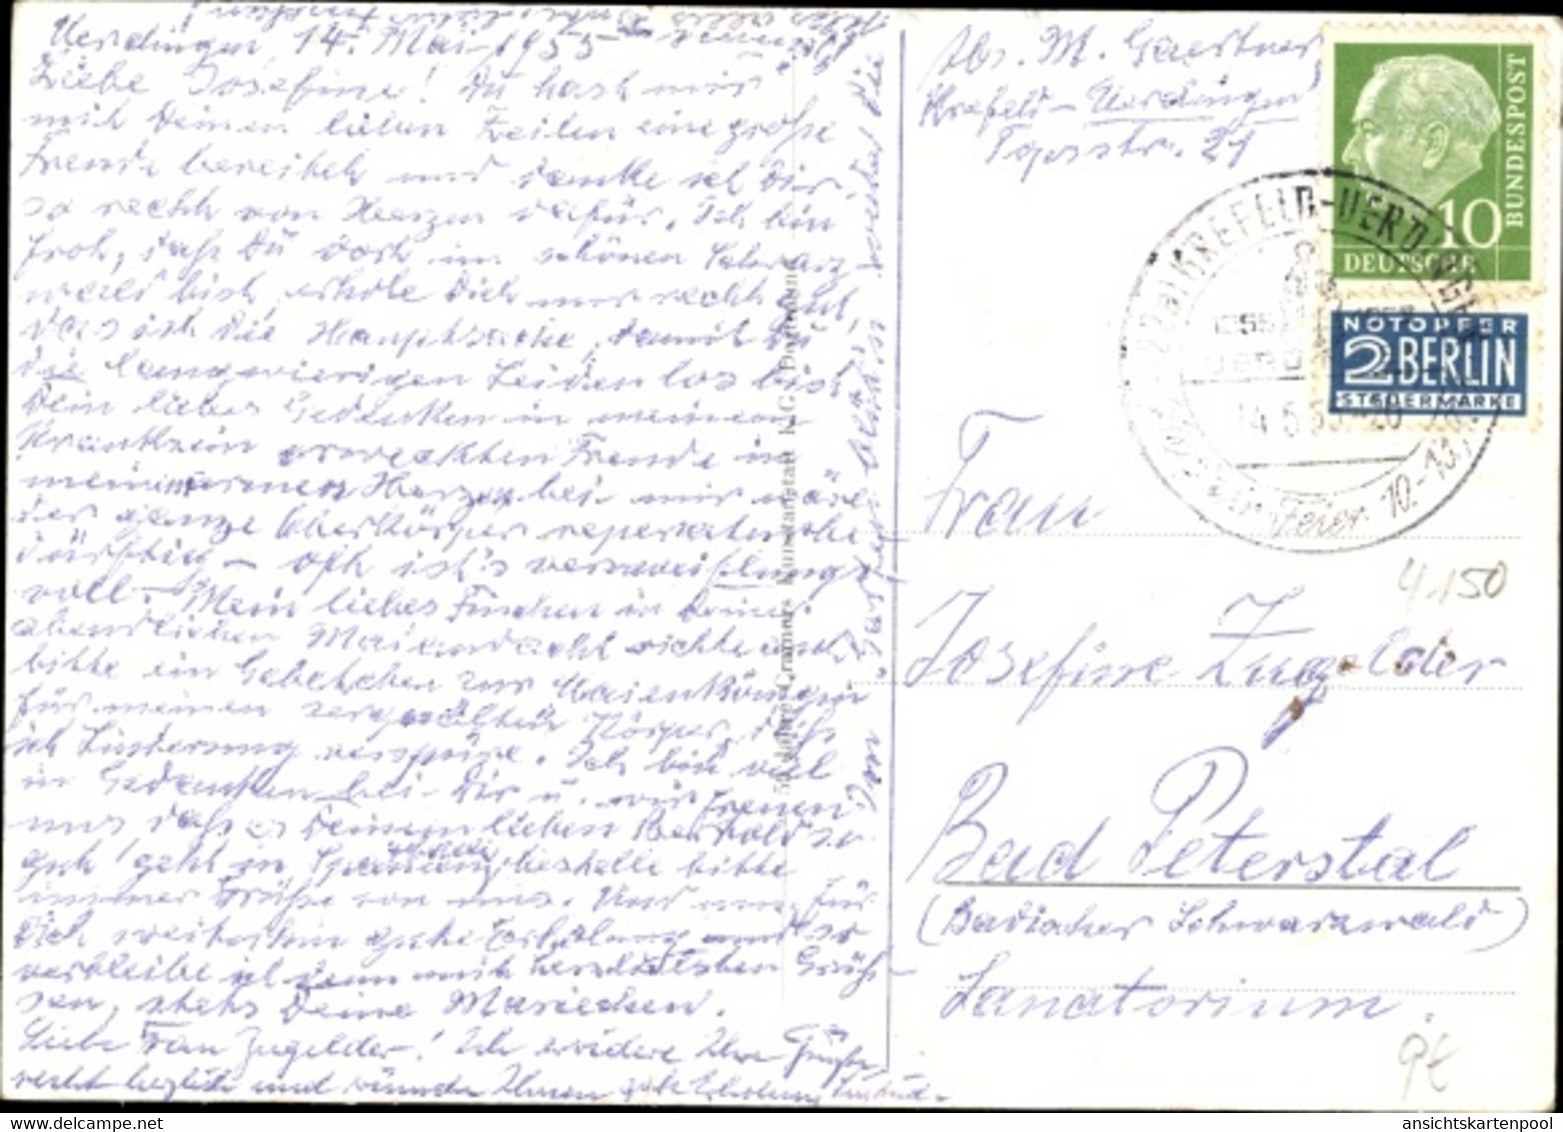 Uerdingen 14. Mai 1955
Liebe Josefine! Du hast mir
mit Deinen lieben Zeilen eine große
Freude bereitet und danke ich Dir
so recht von Herzen dafür. Ich bin
froh, daß Du dort im schönen Schwarz-
wald bist, erhole Dich nur recht gut,
das ist die Hauptsache, damit Du
die langwierigen Leiden los bist.
Dein liebes Gedenken in meinem
Kranksein erweckten Freude in
meinem armen Herzen, bei mir wäre
der ganze Oberkörper reperaturbe-
dürftig – oft ist's verzweiflungs-
voll. – Mein liebes Finchen in Deiner
abendlichen Maiandacht richte auch
bitte ein Gebetchen zur Maienkönigin
für meinen zerquälten Körper, daß
ich Linderung verspüre. Ich bin viel
in Gedanken bei Dir u. wir freuen
uns daß es Deinem lieben Berthold so
gut geht in bestelle bitte
immer Grüße von uns. Und nun für
Dich weiterhin gute Erholung und so
verbleibe ich denn mit herzlichsten Grüs-
sen, stets Deine Mariechen.
Liebe Frau Zugelder! Ich erwidere Ihre Grüße
recht herzlich und wünsche Ihnen gute Erholung
50 Jahre Cramers Kunstanstalt KG, Dortmund
Abs. M. Gaertner
Krefeld – Uerdingen
21
10
DEUTSCHE
BUNDESPOST
NOTOPFER
2 BERLIN
STEUERMARKE
KREFELD-UERDINGEN
14.5.55
Feier 10.-15.
Frau
Josefine Zugelder
Bad Peterstal
(Badischer Schwarzwald)
Sanatorium.
4,150
ansichtskartenpool